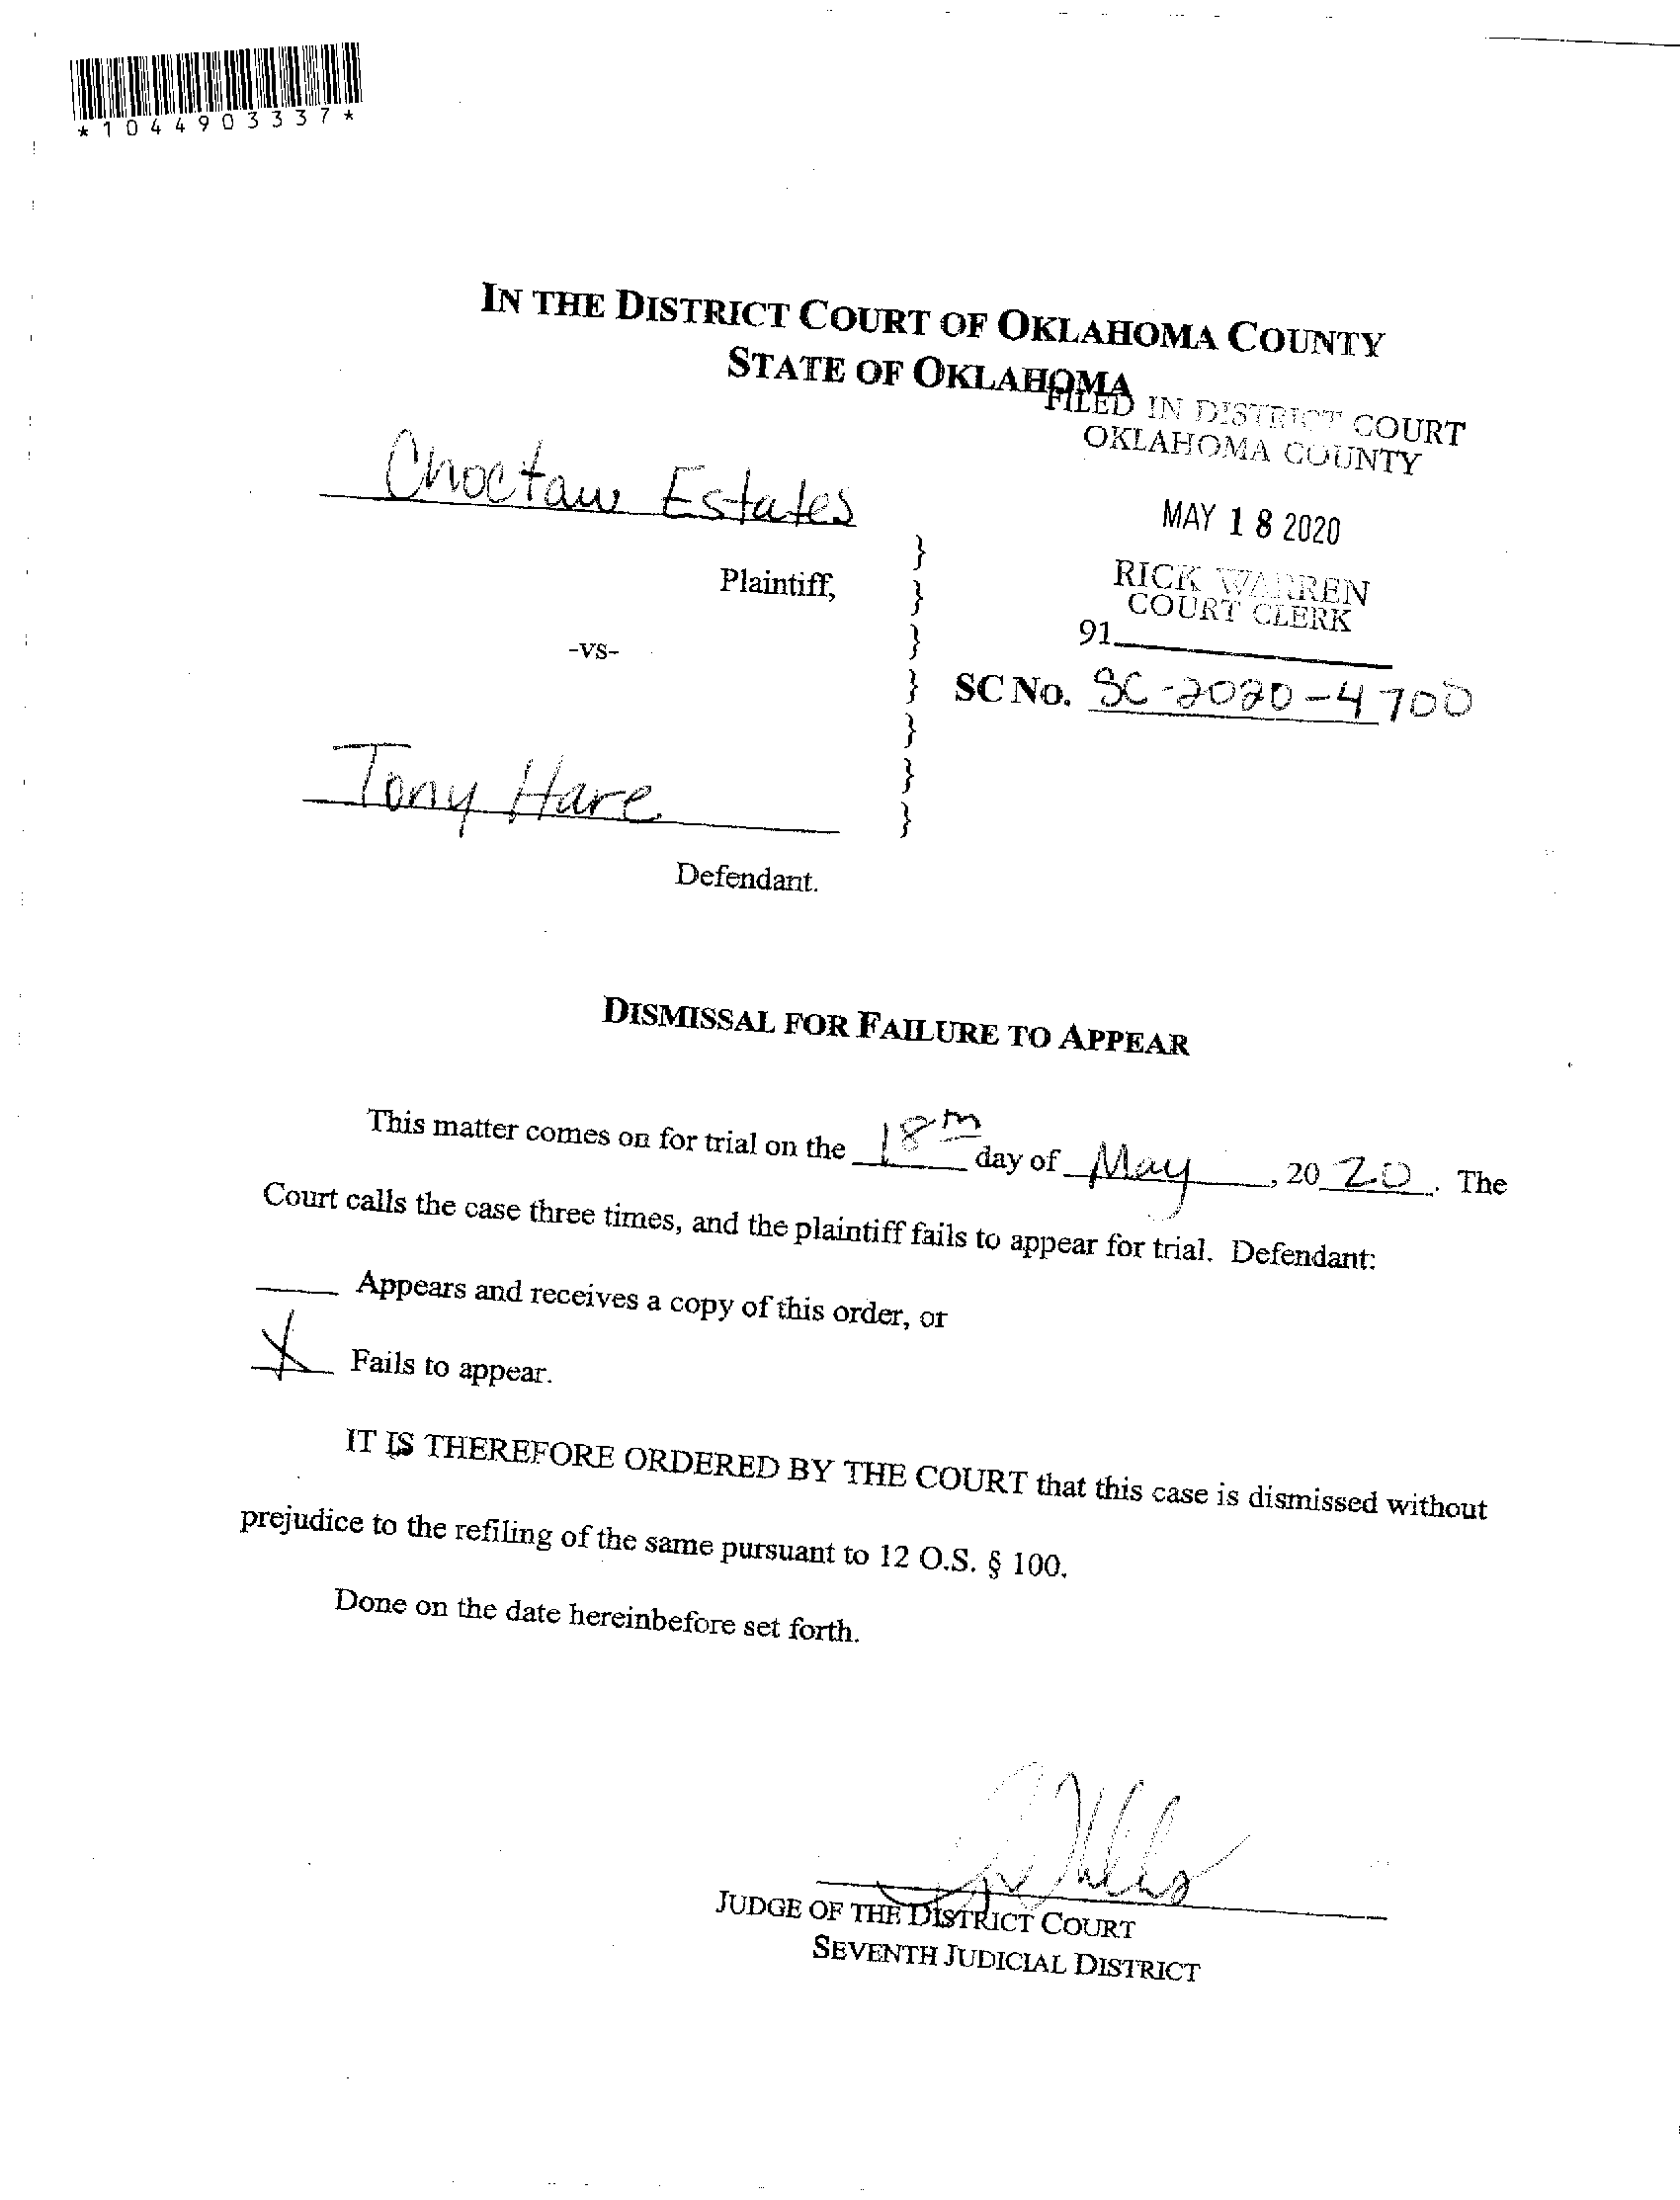 *1044903337*
IN THE DISTRICT COURT OF OKLAHOMA COUNTY
STATE OF OKLAHOMA
FILED IN DISTRICT COURT
OKLAHOMA COUNTY
Choctaw Estates
MAY 18 2020
Plaintiff,
RICK WARREN
COURT CLERK
91
-vs-
SC NO. SC-2020-4700
Tony Hare
Defendant.
DISMISSAL FOR FAILURE TO APPEAR
This matter comes on for trial on the 18th day of May, 2020. The
Court calls the case three times, and the plaintiff fails to appear for trial. Defendant:
Appears and receives a copy of this order, or
X Fails to appear.
IT IS THEREFORE ORDERED BY THE COURT that this case is dismissed without
prejudice to the refiling of the same pursuant to 12 O.S. § 100.
Done on the date hereinbefore set forth.
JUDGE OF THE DISTRICT COURT
SEVENTH JUDICIAL DISTRICT